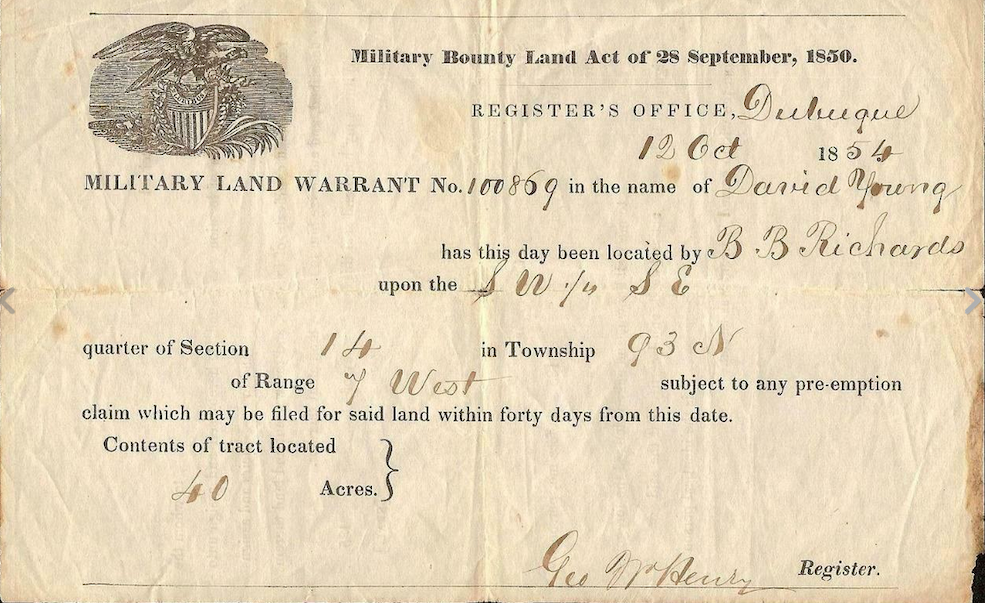 Military Bounty Land Act of 28 September, 1850.
REGISTER'S OFFICE, Dubuque
12 Oct 1854
MILITARY LAND WARRANT No. 100869 in the name of David Young
has this day been located by B B Richards
upon the S W 1/4 S E
quarter of Section 14 in Township 93 N
of Range 7 West subject to any pre-emption
claim which may be filed for said land within forty days from this date.
Contents of tract located
40 Acres.
Geo McHenry Register.